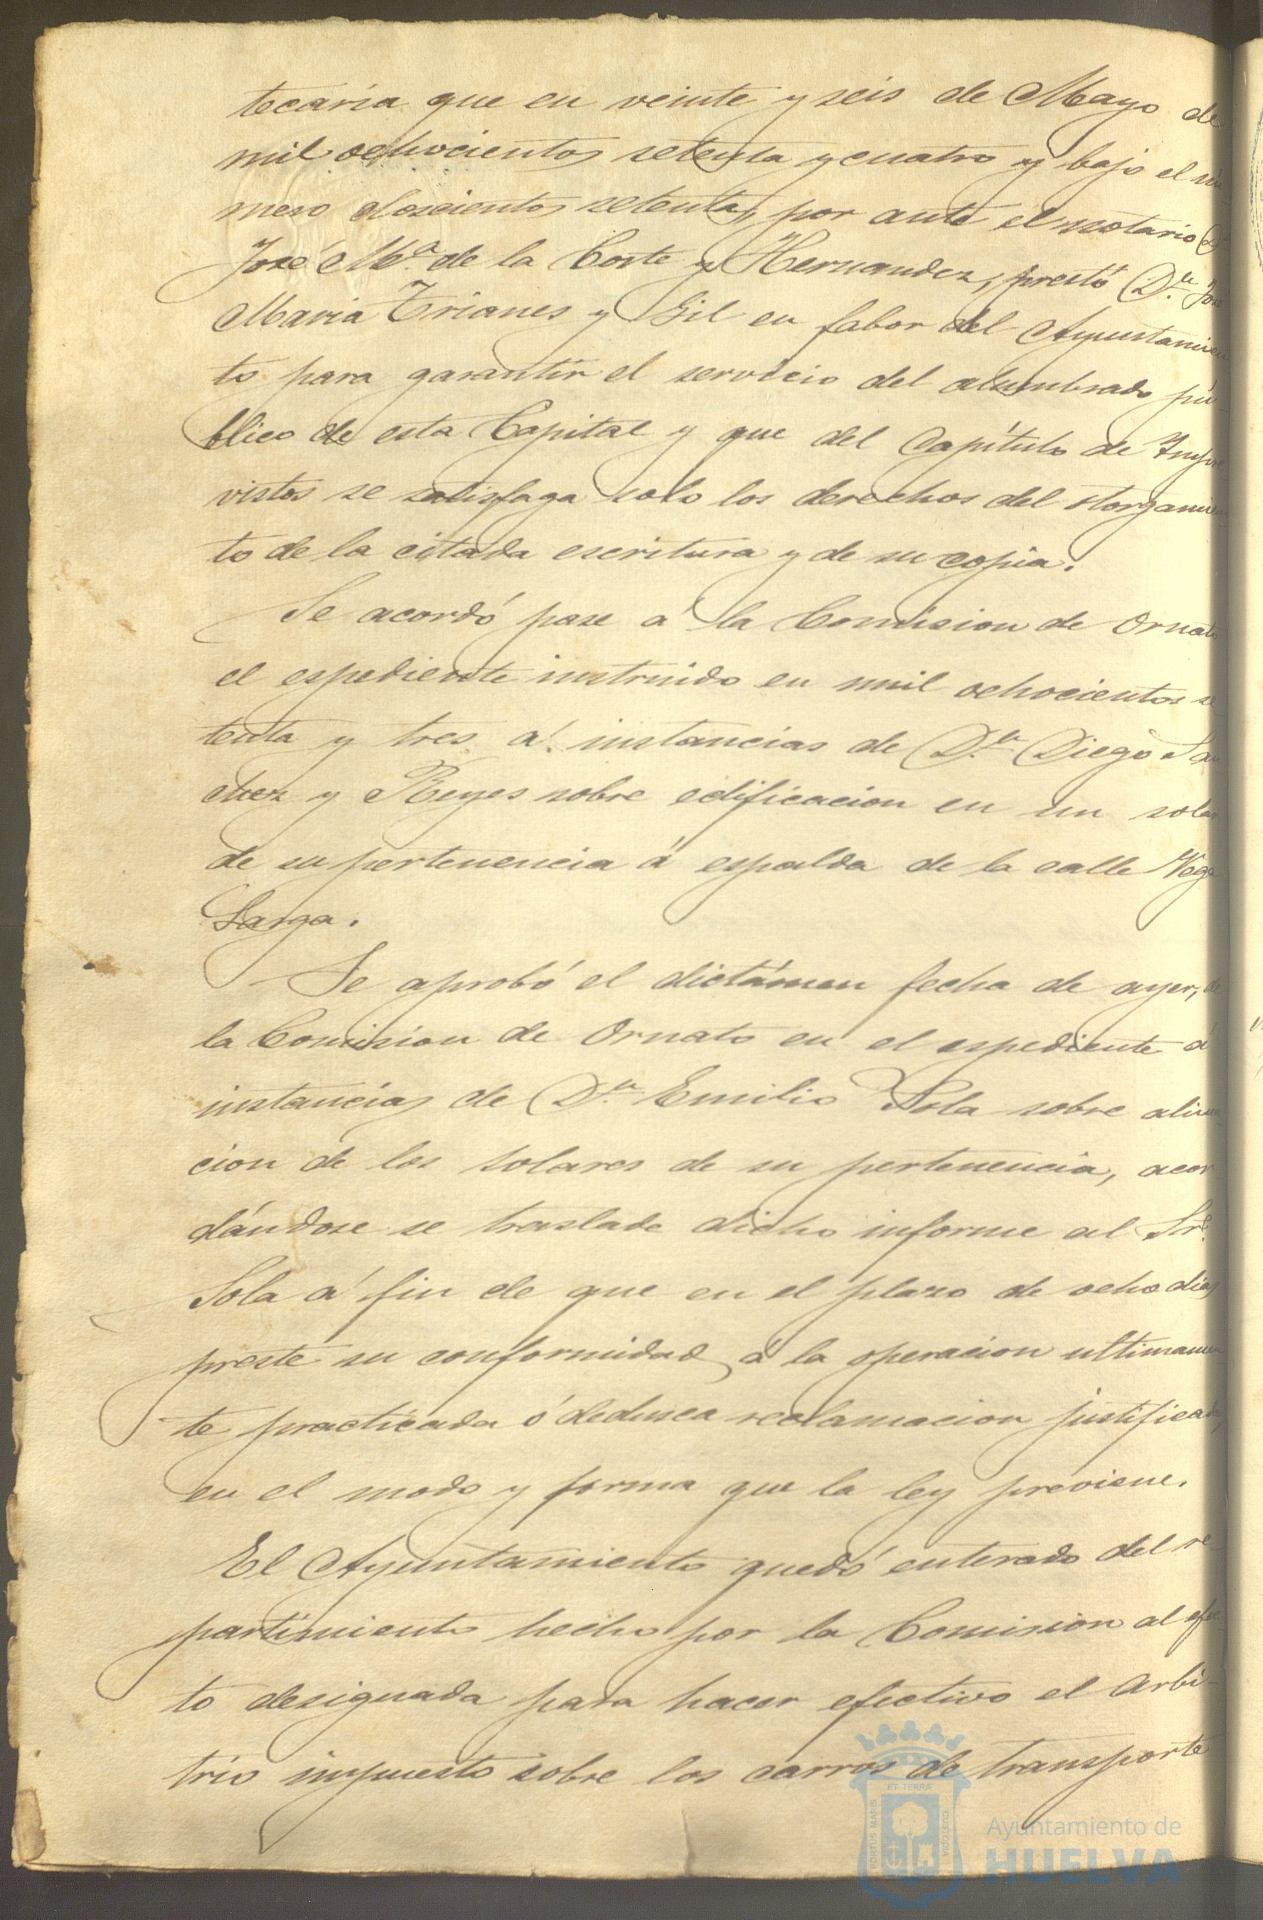 tecaria que en veinte y seis de Mayo de
mil ochocientos setenta y cuatro y bajo el nú
mero doscientos setenta, por ante el notario Dⁿ
José Mª. de la Corte y Hernandez, prestó D.ⁿ José
Maria Trianes y Gil en fabor del Ayuntamien
to para garantir el servicio del alumbrado pú-
blico de esta Capital y que del Capítulo de Impre
vistos se satisfaga solo los derechos del otorgamien
to de la citada escritura y de su copia.
Se acordó pase á la Comision de Ornato
el espediente instruido en mil ochocientos se
tenta y tres á instancias de D.ⁿ Diego San
chez y Reyes sobre edificacion en un solar
de su pertenencia á espalda de la calle Vega
Larga.
Se aprobó el dictámen fecha de ayer, de
la Comision de Ornato en el espediente á
instancias de D.ⁿ Emilio Sola sobre alinea
cion de los solares de su pertenencia, acor
dándose se traslade dicho informe al Sr.
Sola á fin de que en el plazo de ocho dias
preste su conformidad á la operacion ultimamen
te practicada ó deduzca reclamacion justificada,
en el modo y forma que la ley previene.
El Ayuntamiento quedó enterado del re-
partimiento hecho por la Comision al efec
to designada para hacer efectivo el arbi-
trio impuesto sobre los carros de transporte
ET TERRÆ
PORTUS MARIS
CUSTODIA
Ayuntamiento de
HUELVA